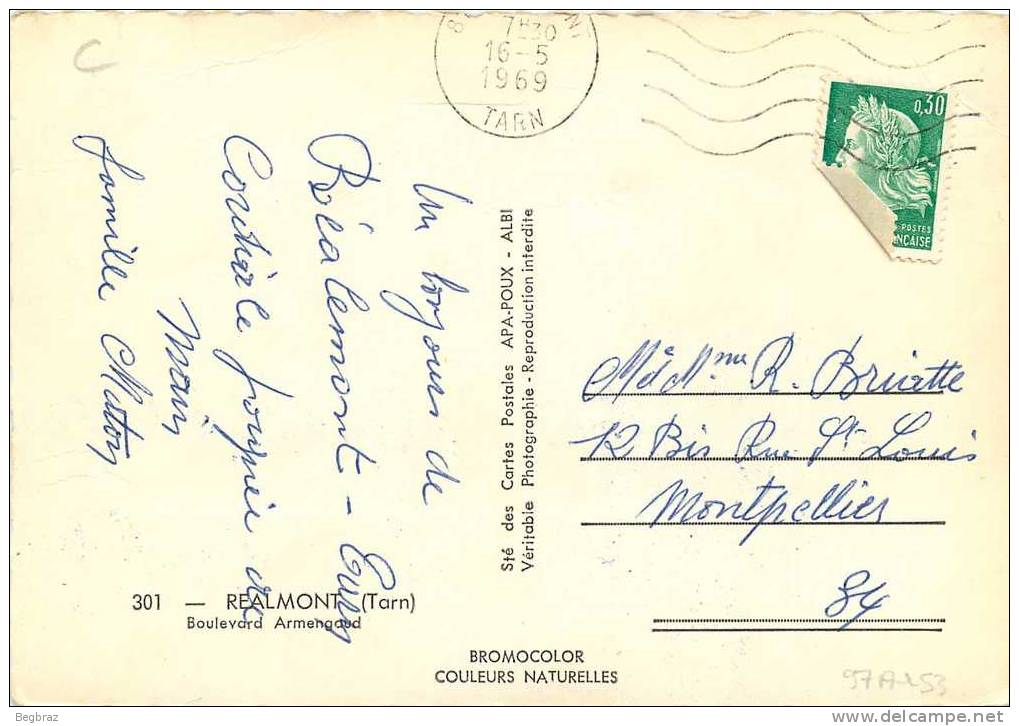 7H30
16-5
1969
TARN
0,30
POSTES
Un bonjour de
Réalemont -
Cordiale poignée de
Main
famille
Sté des Cartes Postales APA-POUX - ALBI
Véritable Photographie - Reproduction interdite
M et Mme R. Briatte
12 Bis Rue St Louis
Montpellier
84
301 — REALMONT (Tarn)
Boulevard Armengaud
BROMOCOLOR
COULEURS NATURELLES
97A-253
Begbraz
www.delcampe.net